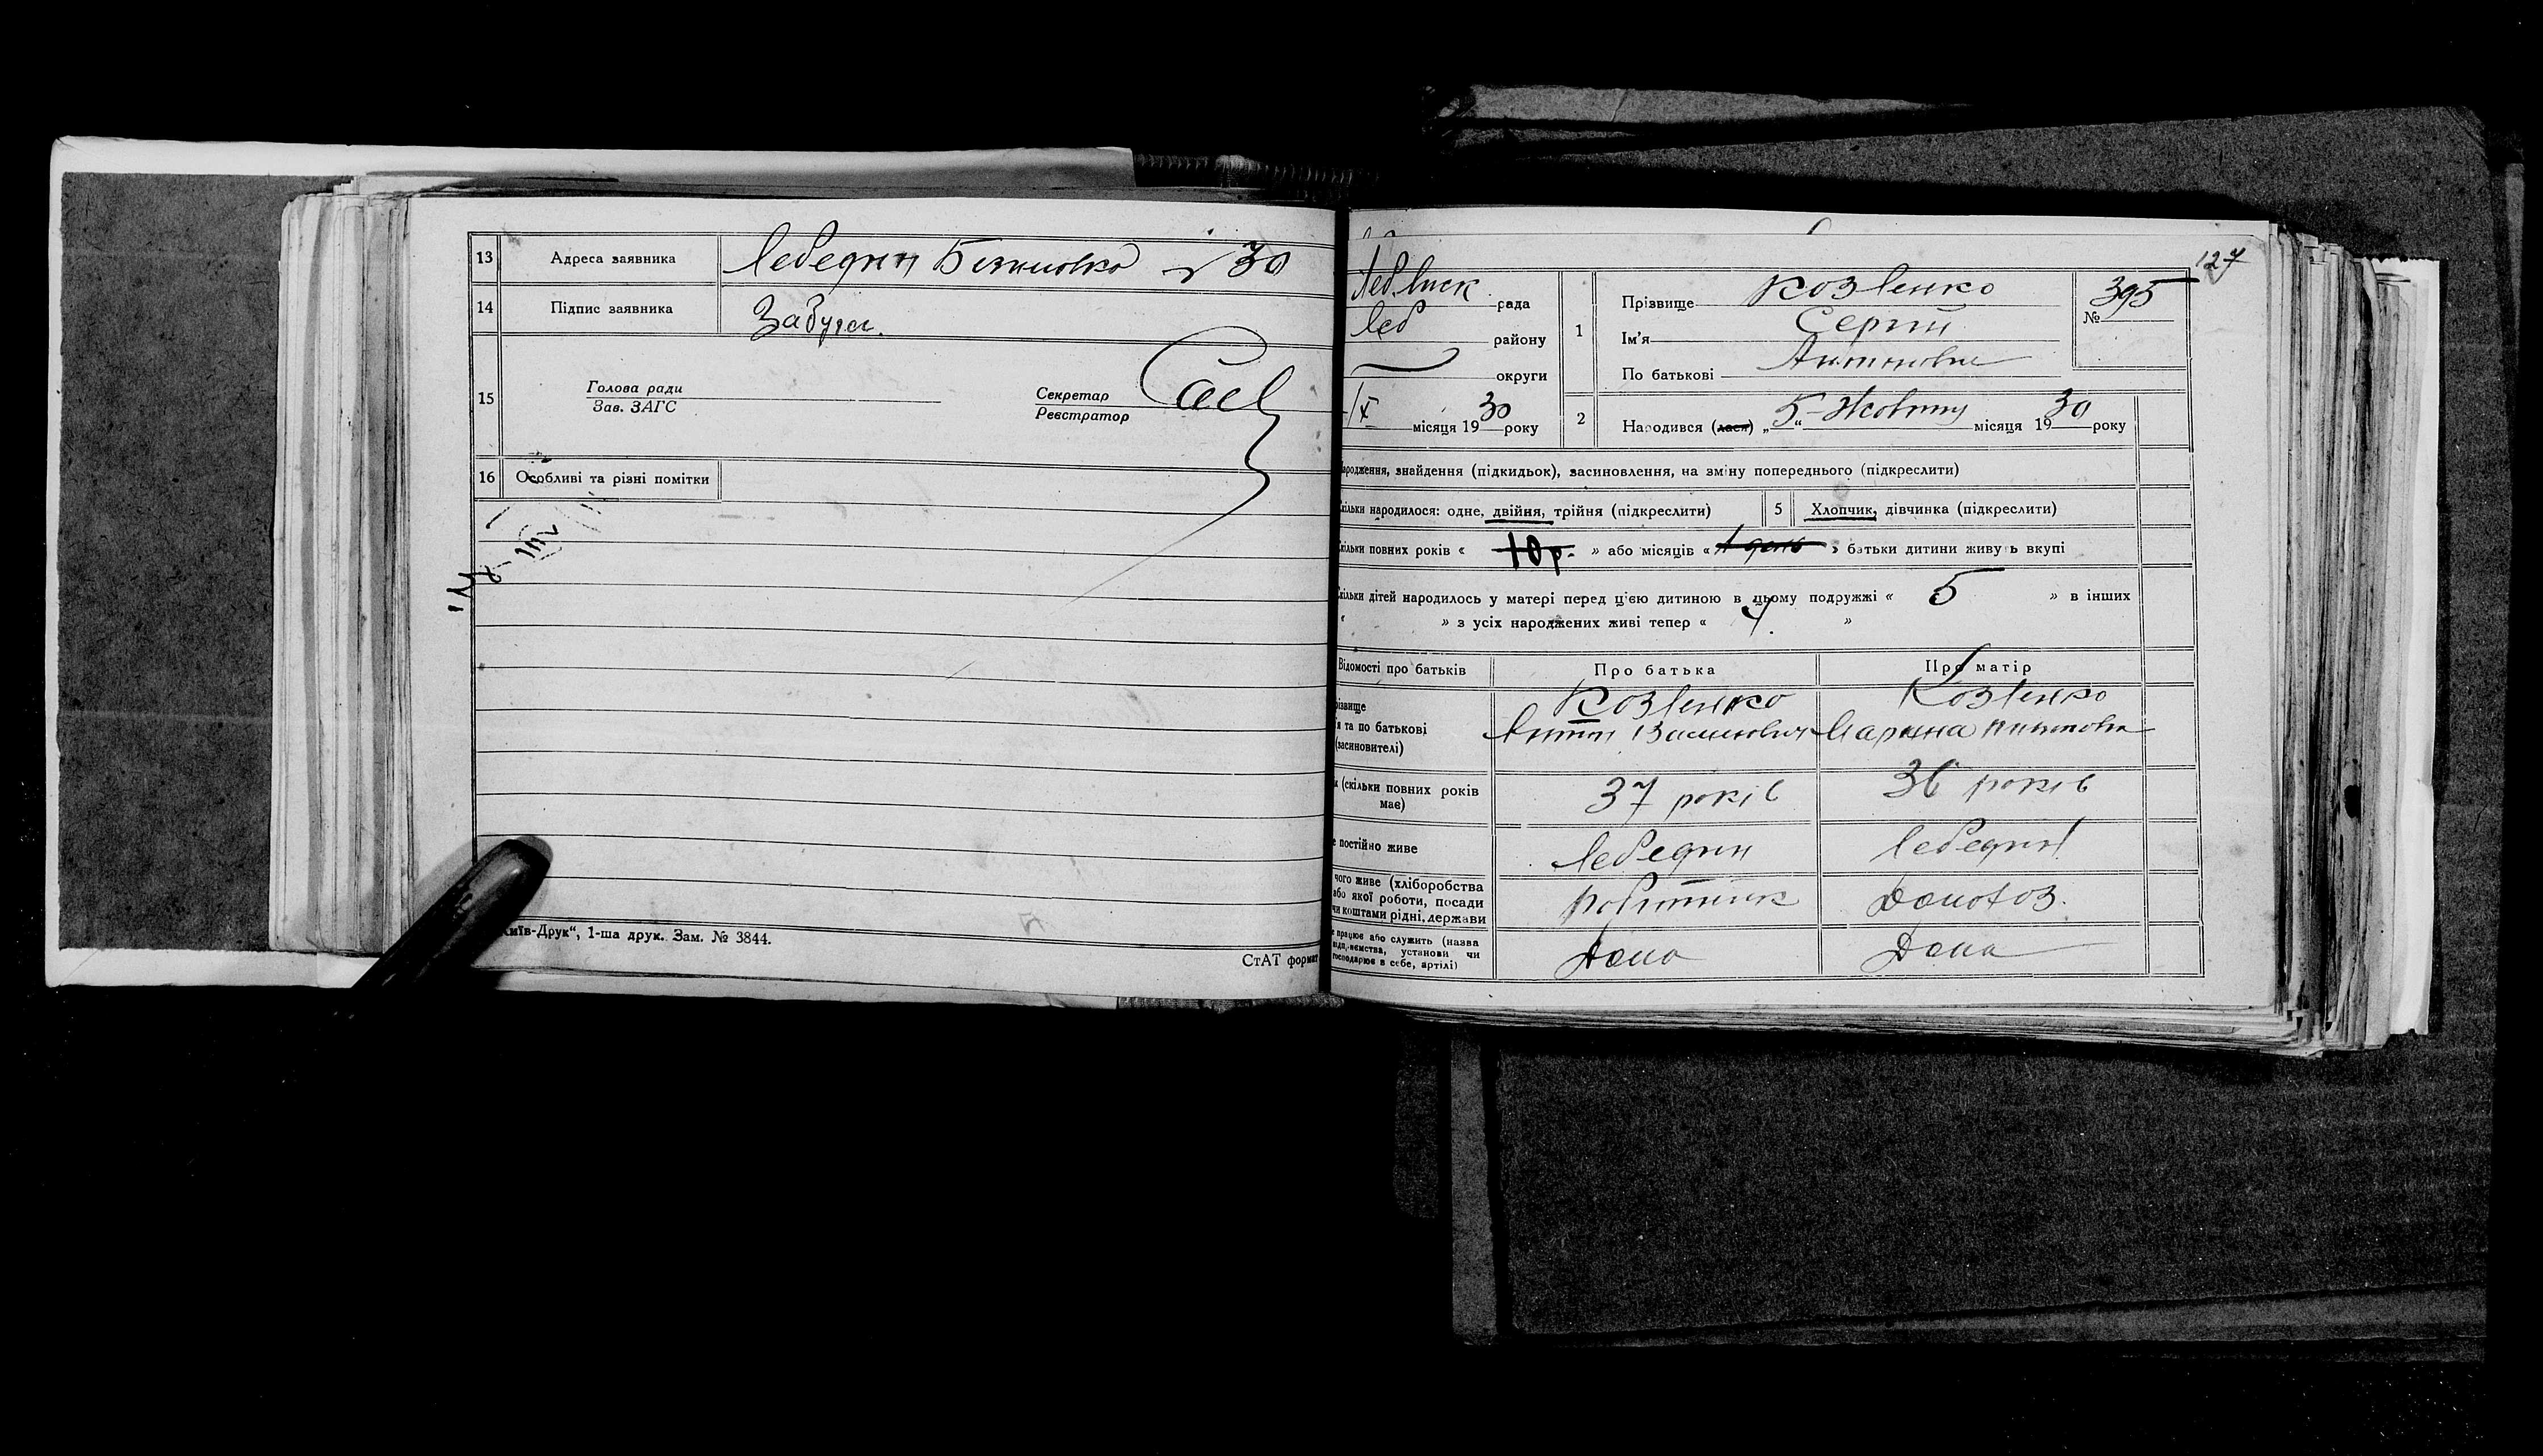 13 Адреса заявника Лебедин № 30
14 Підпис заявника
15 Голова ради
Зав. ЗАГС
Секретар
Реєстратор
16 Особливі та різні помітки
Київ-Друк“, 1-ша друк. Зам. № 3844.
СтАТ формат
127
рада
Леб району
округи
IX місяця 1930 року
1 Прізвище Козленко
Ім'я Сергій
По батькові
№ 395
2 Народився (лася) „5“ Жовтня місяця 1930 року
ародження, знайдення (підкидьок), засиновлення, на зміну попереднього (підкреслити)
кільки народилося: одне, двійня, трійня (підкреслити) 5 Хлопчик, дівчинка (підкреслити)
кільки повних років « 10 р. » або місяців « 1 день » батьки дитини живуть вкупі
кільки дітей народилось у матері перед цією дитиною в цьому подружжі « 5 » в інших
« » з усіх народжених живі тепер « 4 »
Відомості про батьків Про батька Про матір
різвище Козленко Козленко
я та по батькові Антон Василович
(засиновителі)
к (скільки повних років має) 37 років 36 років
е постійно живе Лебедин Лебедин
чого живе (хліборобства
або якої роботи, посади
чи коштами рідні, держави Робітник Домохоз.
е працює або служить (назва
підп,иємства, установи чи
господарює в себе, артілі) Дома Дома